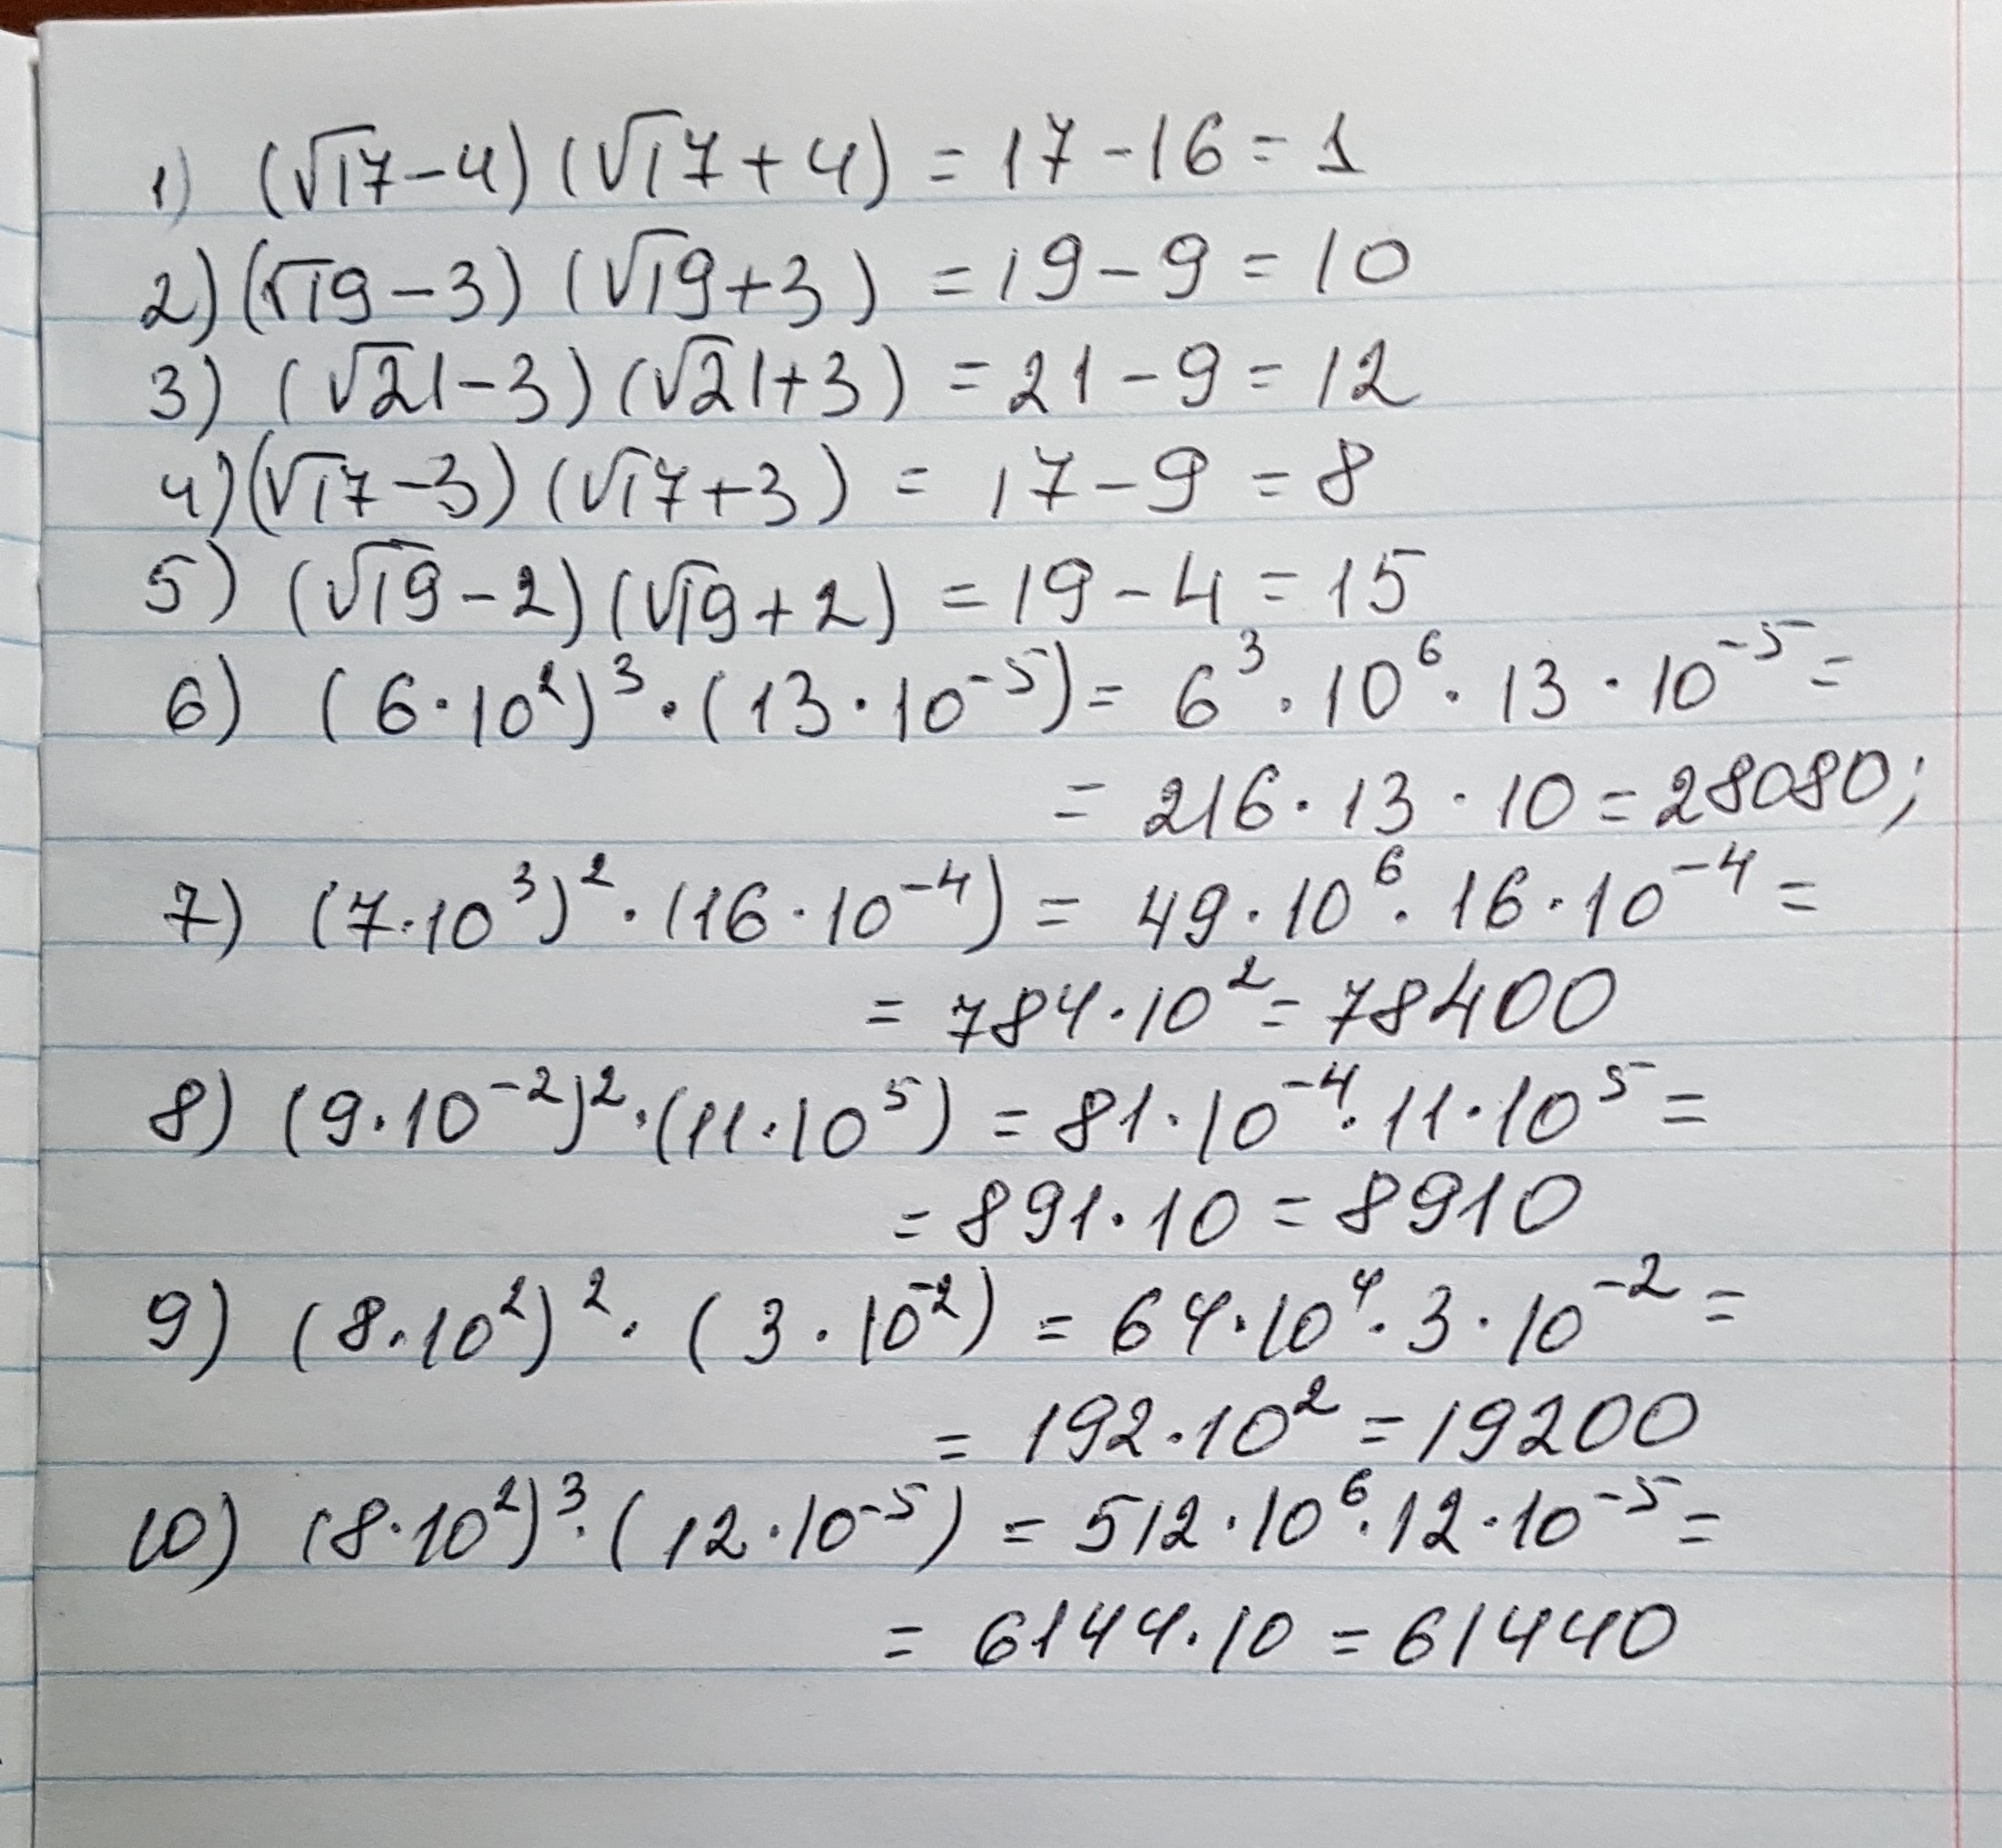 1) (√17-4)(√17+4) = 17-16 = 1
2) (√19-3) (√19+3) = 19-9 = 10
3) (√21-3)(√21+3) = 21-9 = 12
4) (√17-3) (√17+3) = 17-9 = 8
5) (√19-2)(√19+2) = 19-4 = 15
6) (6·10²)³·(13·10⁻⁵) = 6³·10⁶·13·10⁻⁵ =
= 216·13·10 = 28080;
7) (7·10³)²·(16·10⁻⁴) = 49·10⁶·16·10⁻⁴ =
= 784·10² = 78400
8) (9·10⁻²)²·(11·10⁵) = 81·10⁻⁴·11·10⁵ =
= 891·10 = 8910
9) (8·10²)²·(3·10⁻²) = 64·10⁴·3·10⁻² =
= 192·10² = 19200
10) (8·10²)³·(12·10⁻⁵) = 512·10⁶·12·10⁻⁵ =
= 6144·10 = 61440